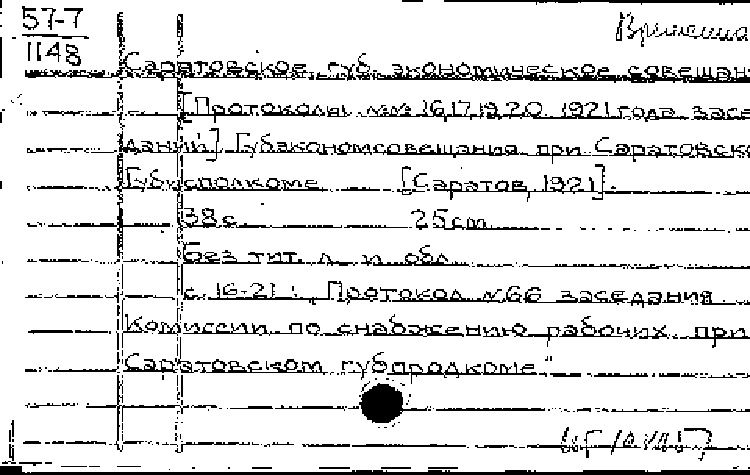 57-7
1148
Временна
Саратовское губ. экономическое совещан
[Протоколы №№ 16, 17, 19, 20 1921 года засе
даний] Губэкономсовещания при Саратовско
Губисполкоме [Саратов, 1921].
38 с. 25 cm
Без тит. л. и обл.
с. 16-21: „Протокол №66 заседания
Комиссии по снабжению рабочих при
Саратовском губпродкоме"